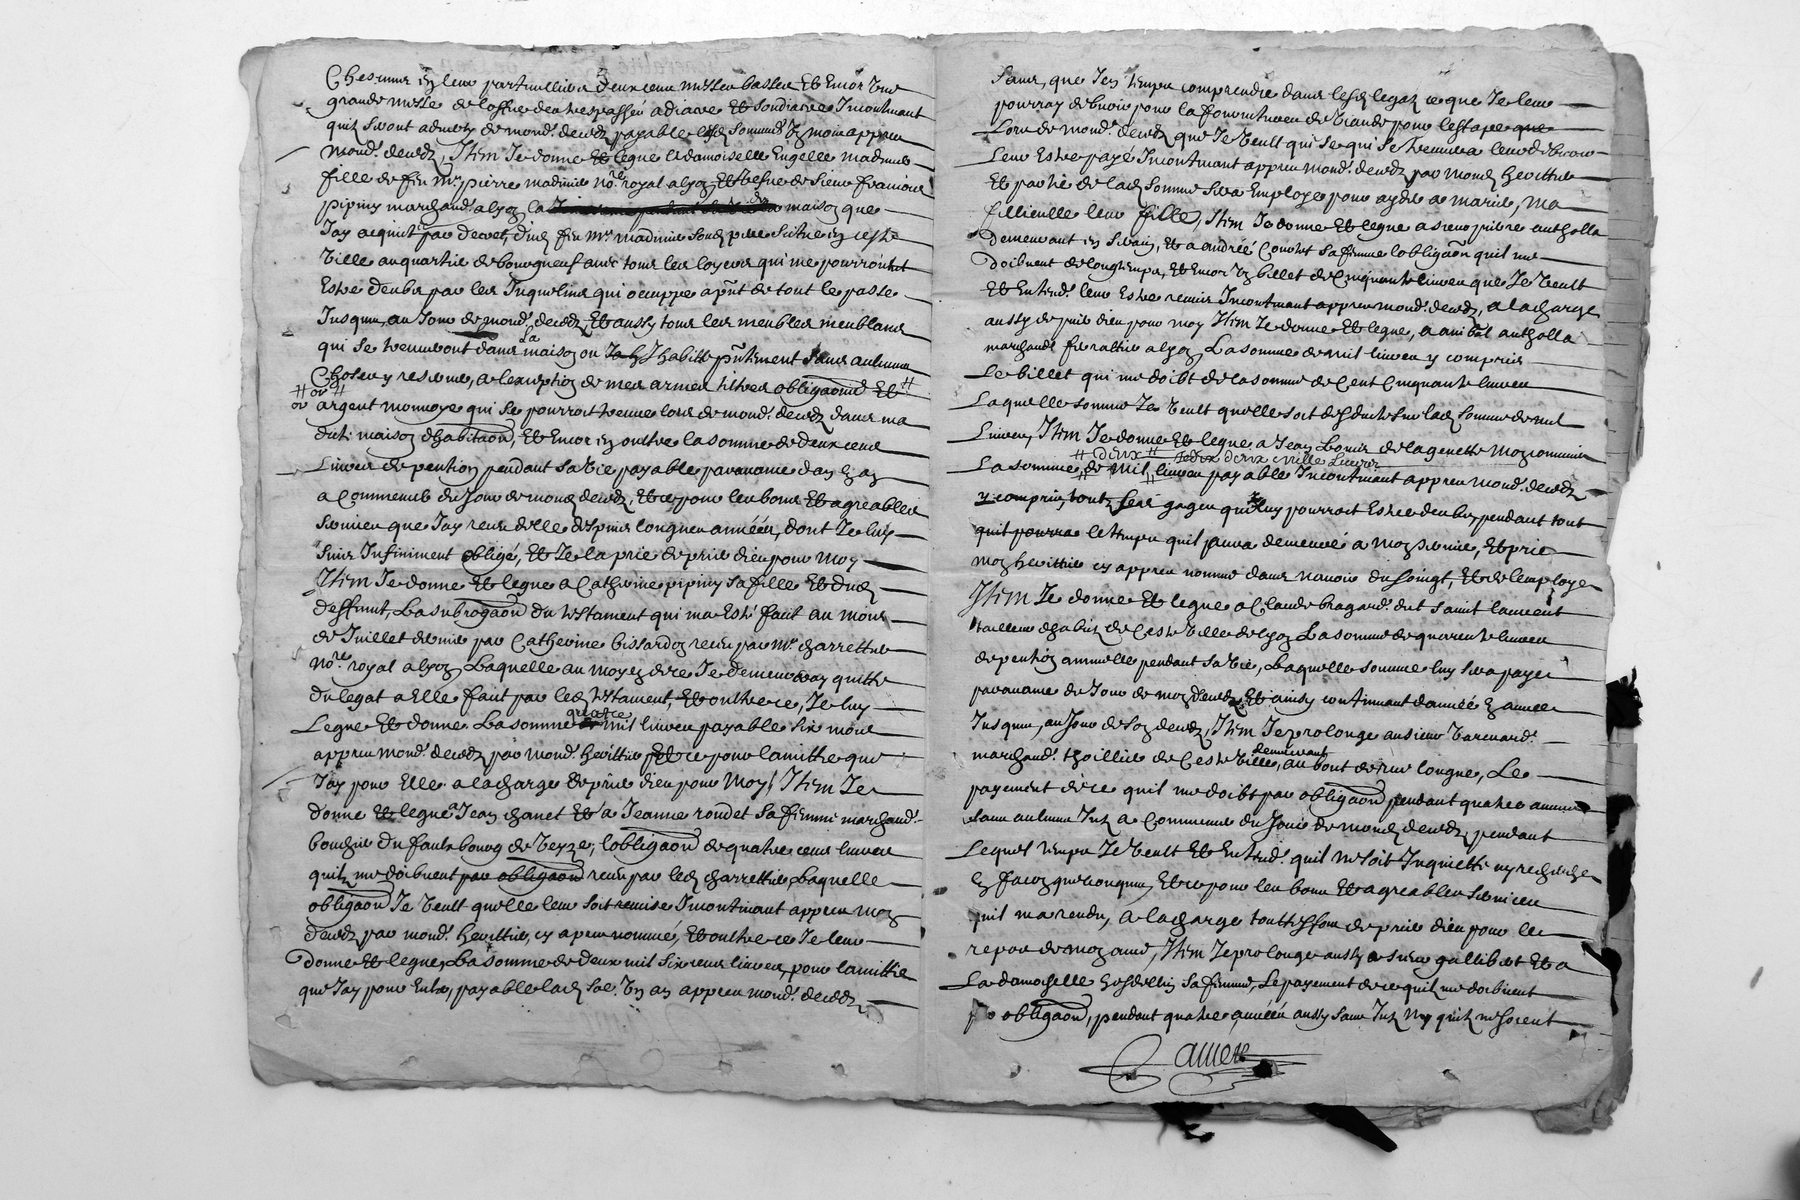 Chesmes en leur particulier deux cens messes basses Et Encor Une
grande messe de loffice des trespassés a diacre Et soudiacre Incontinant
quilz seront advertis de mond. decedz payable lesd. sommes Un mois appres
mond. decedz, Item Je donne Et legue a damoiselle Engelle madinie
fille de feu Mr. pierre madinie nore. royal a lyon Et vefve de sieur francois
pipiny marchand a lyon la maison que
Jay acquis par decret, dud. feu Mr. madinie sond. pere scituée en ceste
Ville au quartie de bourgneuf avec tous les loyers qui me pourront
Estre deubz par les Inquelins qui occuppe a pnt. de tout le passe
Jusques, au Jour de mond. decedz, Et aussy tous les meubles meublans
qui se treuveront dans la maison ou Jhabitte pntement sans aulcune
Chose y reserver, a lexception de mes armes tiltres obligaons Et
ou argent monnoye qui se pourroit treuver lors de mond. decedz dans ma
dite maison dhabitaon, Et Encor en oultre la somme de deux cens
Livres de pention pendant sa vie payable par avance dan en an
a Commencer du Jour de mond. decedz, Et ce pour les bons Et agreables
services que Jay receu delle despuis longues années, dont Je luy
suis Infiniment obligé, Et Je la prie de prier dieu pour moy
Item Je donne Et legue a Catherine pipiny sa fille Et dud.
deffunt, La subrogaon du testament qui ma Esté fait au mois
de Juillet dernier par Catherine bissardon receu par Mr. charrettier
nore. royal a lyon Laquelle au moyen de ce Je demeureray quitte
du legat a Elle fait par led. testament, Et oultre ce, Je luy
Legue Et donne La somme quatre mil livres payable six mois
appres mond. decedz par mond. herittier Et ce pour lamittie que
Jay pour Elle a la charge de prier dieu pour moy, Item Je
donne Et legue a Jean chanet Et a Jeanne rondet sa femme marchand
bouchier du faulxbourg de Veyze, lobligaon de quatre cens livres
quilz me doibvent par obligaon receu par led. charrettier, Laquelle
obligaon Je Veult quelle leur soit remise Incontinant appres mon
decedz par mond. heritier, cy apres nommé, Et oultre ce Je leur
donne Et legue, La somme de deux mil six cens livres, pour lamittie
que Jay pour Eulx, payable lad. soe. Un an appres mond. decedz
sans, que Jen tempt comprendre dans lesd. legatz ce que Je leur
pourray debvoir pour la fourniture de viande pour
Lors de mond. decedz que Je Veult qui se treuvera leur debvoir
Leur Estre payé Incontinant appres mond. decedz par mond. herittier
Et partie de lad. somme sera Employe pour ayder a marier, ma
fillieulle leur fille, Item Je donne Et legue a sieur pierre antholla
demeurant en, Et a andréé Couchet sa femme lobligaon quil me
doibvent de longtemps, Et Encor Un billet de Cinquante livres que Je Veult
Et Entend. leur Estre remis Incontinant appres mond. decedz, a la charge
aussy de prier dieu pour moy Item Je donne Et legue, a antholla
marchand ferratier a lyon, La somme de mil livres y compris
Le billet qui me doibt de la somme de Cent Cinquante livres
Laquelle somme Je Veult quelle soit desduite sur lad. somme de mil
Livres, Item Je donne Et legue a Jean Louis de lagenette mon commis
deux deux mille livres
La somme, de mil, livres payable Incontinant appres mond. decedz
y compris, toutz ses gages qui luy pourroit Estre deubz, pendant tout
quil pourra le temps quil saura demeuré a mon service, Et prie
mon herittier cy appres nommé dans navoir du soingt, Et de lemploye
Item Je donne Et legue a Claude bragard dit saint laurent
tailleur dhabitz de Ceste Ville de lyon La somme de quarente livres
de pention annuelle pendant sa Vie, Laquelle somme luy sera payee
par avance du Jour de mon decedz Et ainsy continuant dannéé En annéé
Jusques, au Jour de son decedz, Item Je prolonge au sieur Varenard
marchand thoillier de Ceste Ville, demeurant au bout de rue longue, Le
payement de ce quil me doibt par obligaon pendant quatre annees
sans aulcune Intz a Commencer du Jour de mond. decedz pendant
Lequel temps Je Veult Et Entend. quil ne soit Inquietté ny recherché
En facon quelconques, Et ce pour les bons Et agreables services
quil ma rendu, a la charge touttesfois de prier dieu pour le
repos de mon ame, Item Je prolonge aussy a sieur gallibert Et a
La damoiselle sa femme, Le payement de ce quilz me doibvent
par obligaon, pendant quatre annéés aussy sans Intz ny quilz ne soient